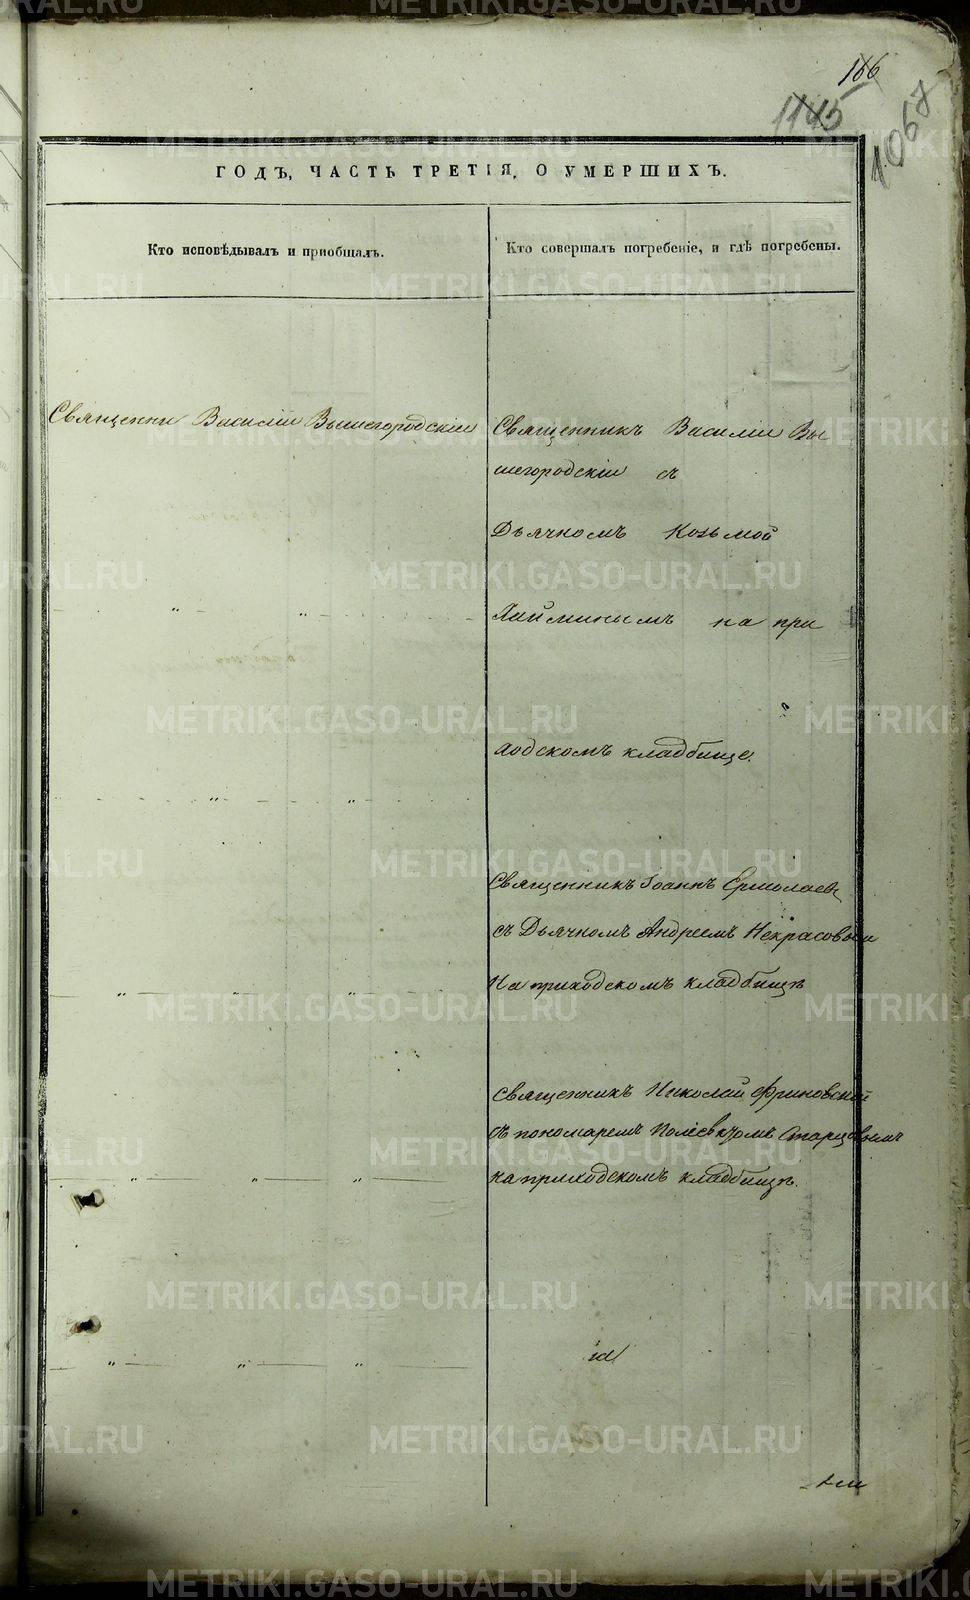 166
1145
1067
ГОДЪ, ЧАСТЬ ТРЕТІЯ, О УМЕРШИХЪ.
Кто исповѣдывалъ и приобщалъ.
Кто совершалъ погребеніе, и гдѣ погребены.
Священни Василій Вышегородскій
Священникъ Василій Вы
шегородскій съ
Дьячкомъ Козьмой
на при
ходскомъ кладбище.
Священникъ Іоаннъ Ермолаевъ
съ Дьячкомъ Андреемъ Некрасовым
На приходскомъ кладбищѣ
Священникъ Николай Фриновскій
съ пономаремъ Старцовымъ
на приходскомъ кладбищѣ.
id
METRIKI.GASO-URAL.RU